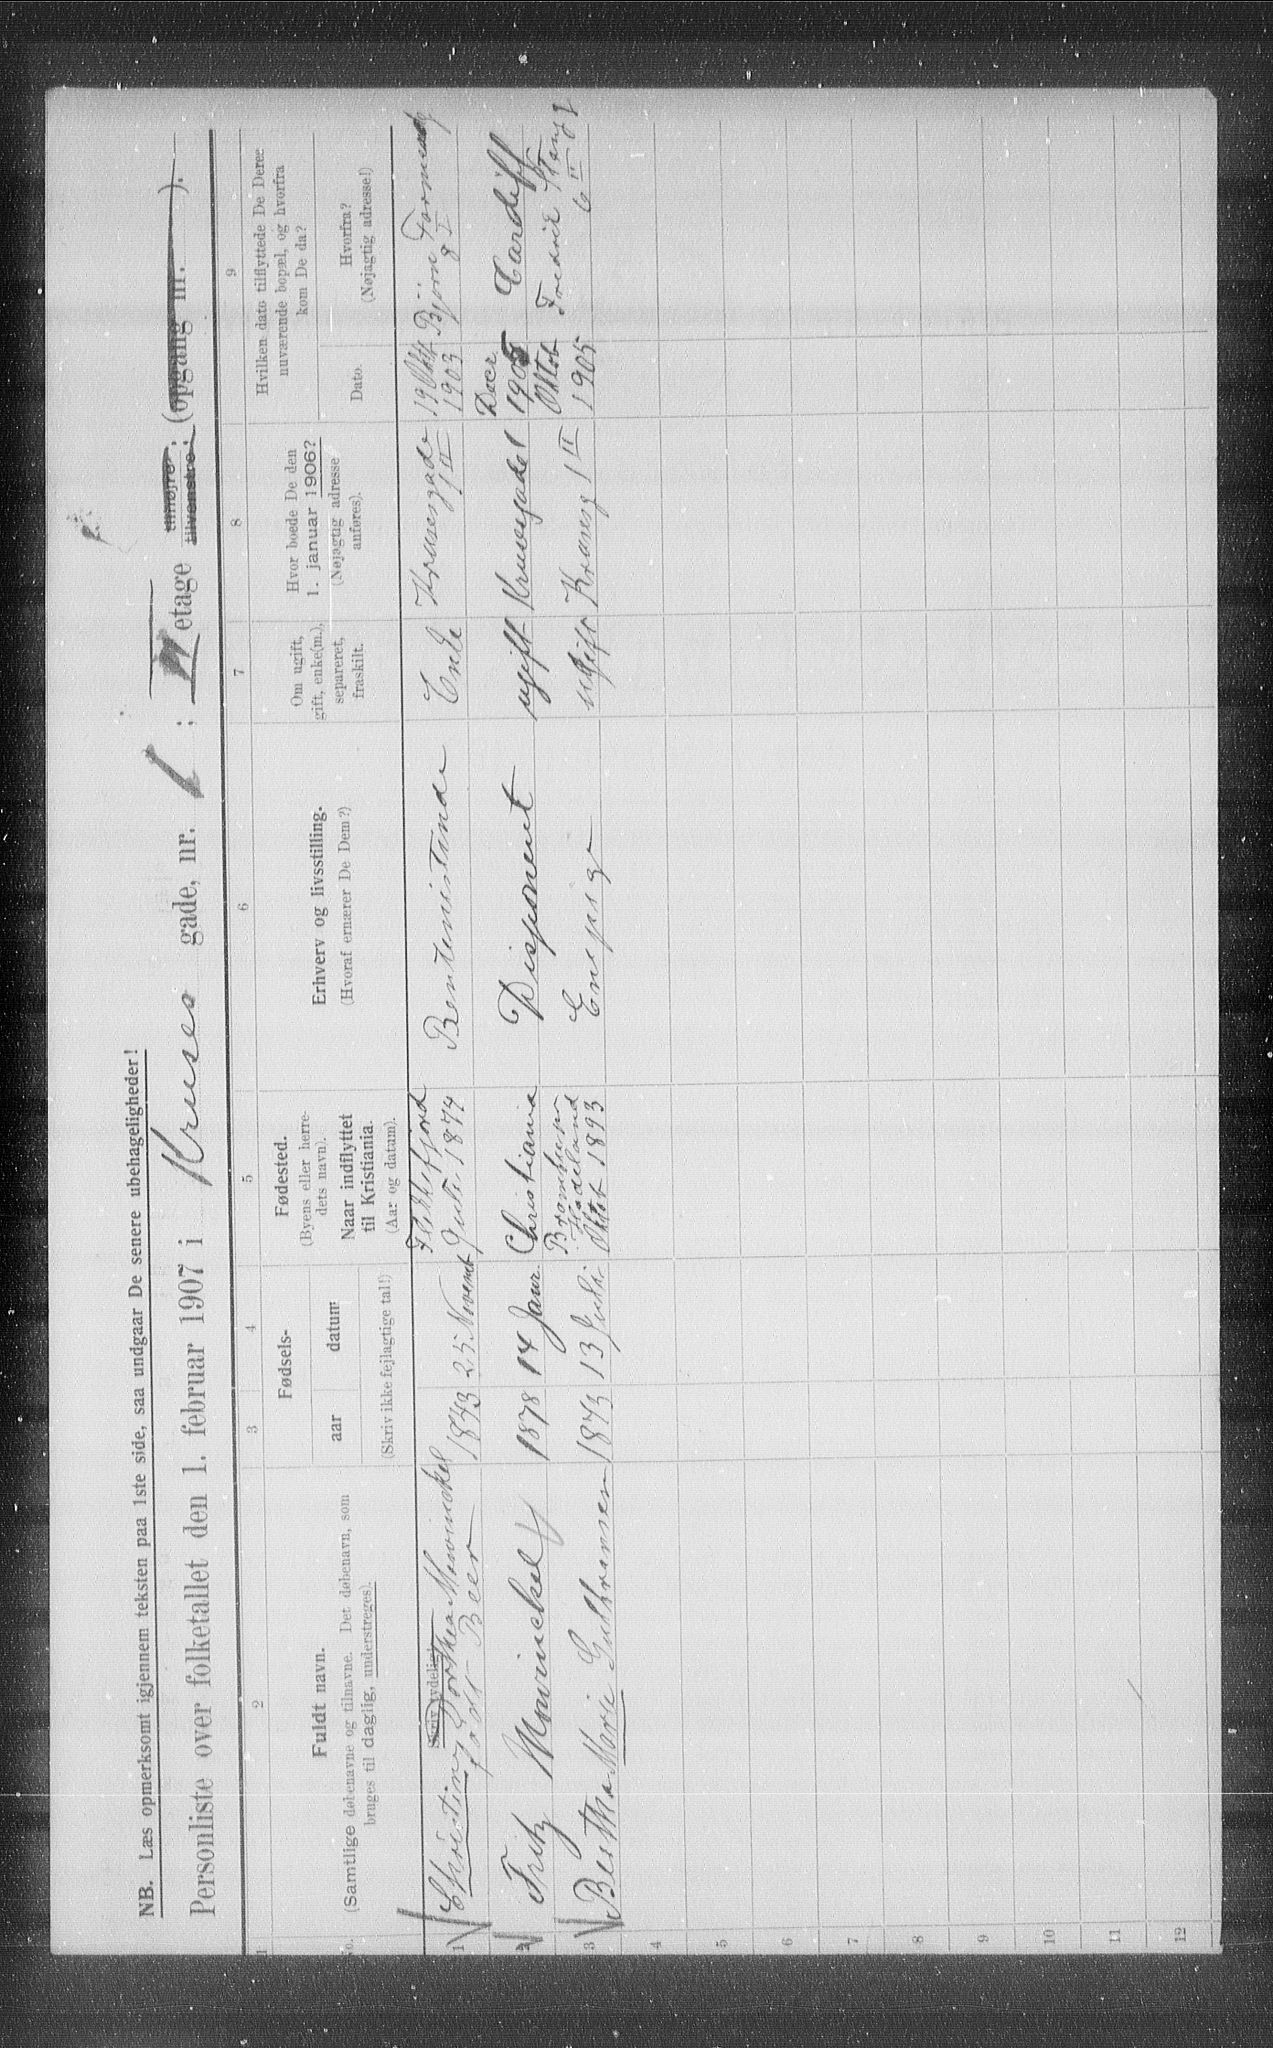 NB. Læs opmerksomt igjennem teksten paa 1ste side, saa undgaar De senere ubehageligheder!
Personliste over folketallet den 1. februar 1907 i Kruses gade, nr. 1; II etage tilhøjre; tilvenstre; (opgang m. ).
1 2 3 4 5 6 7 8 9
No.
Fuldt navn.
(Samtlige døbenavne og tilnavne. Det døbenavn, som
bruges til daglig, understreges).
Skriv tydelig!
Fødsels-
aar datum
(Skriv ikke fejlagtige tal!)
Fødested.
(Byens eller herre-
dets navn).
Naar indflyttet
til Kristiania.
(Aar og datum).
Erhverv og livsstilling.
(Hvoraf ernærer De Dem?)
Om ugift,
gift, enke(m.),
separeret,
fraskilt.
Hvor boede De den
1. januar 1906?
(Nøjagtig adresse
anføres).
Hvilken dato tilflyttede De Deres
nuværende bopæl, og hvorfra
kom De da?
Dato.
Hvorfra?
(Nøjagtig adresse!)
1 Christine Dorthea Mowinckel født Beer 1843 25 Novemb Flekkefjord Juli 1874 Rentenistinde Enke Krusesgade 1 II 19 Okt. 1903 Bjørn Farmannsg 8 I
2 Fritz Mowinckel 1878 14 Janr. Christiania Disponent ugift Krusegade 1 Decr. 1905 Cardiff
3 Berthe Marie Gulbransen 1873 13 Juli Hadeland Oktob 1893 Enepige ugift Krusesg 1 II Oktob 1905 Fredrik Stangs g 6 II
4
5
6
7
8
9
10
11
12